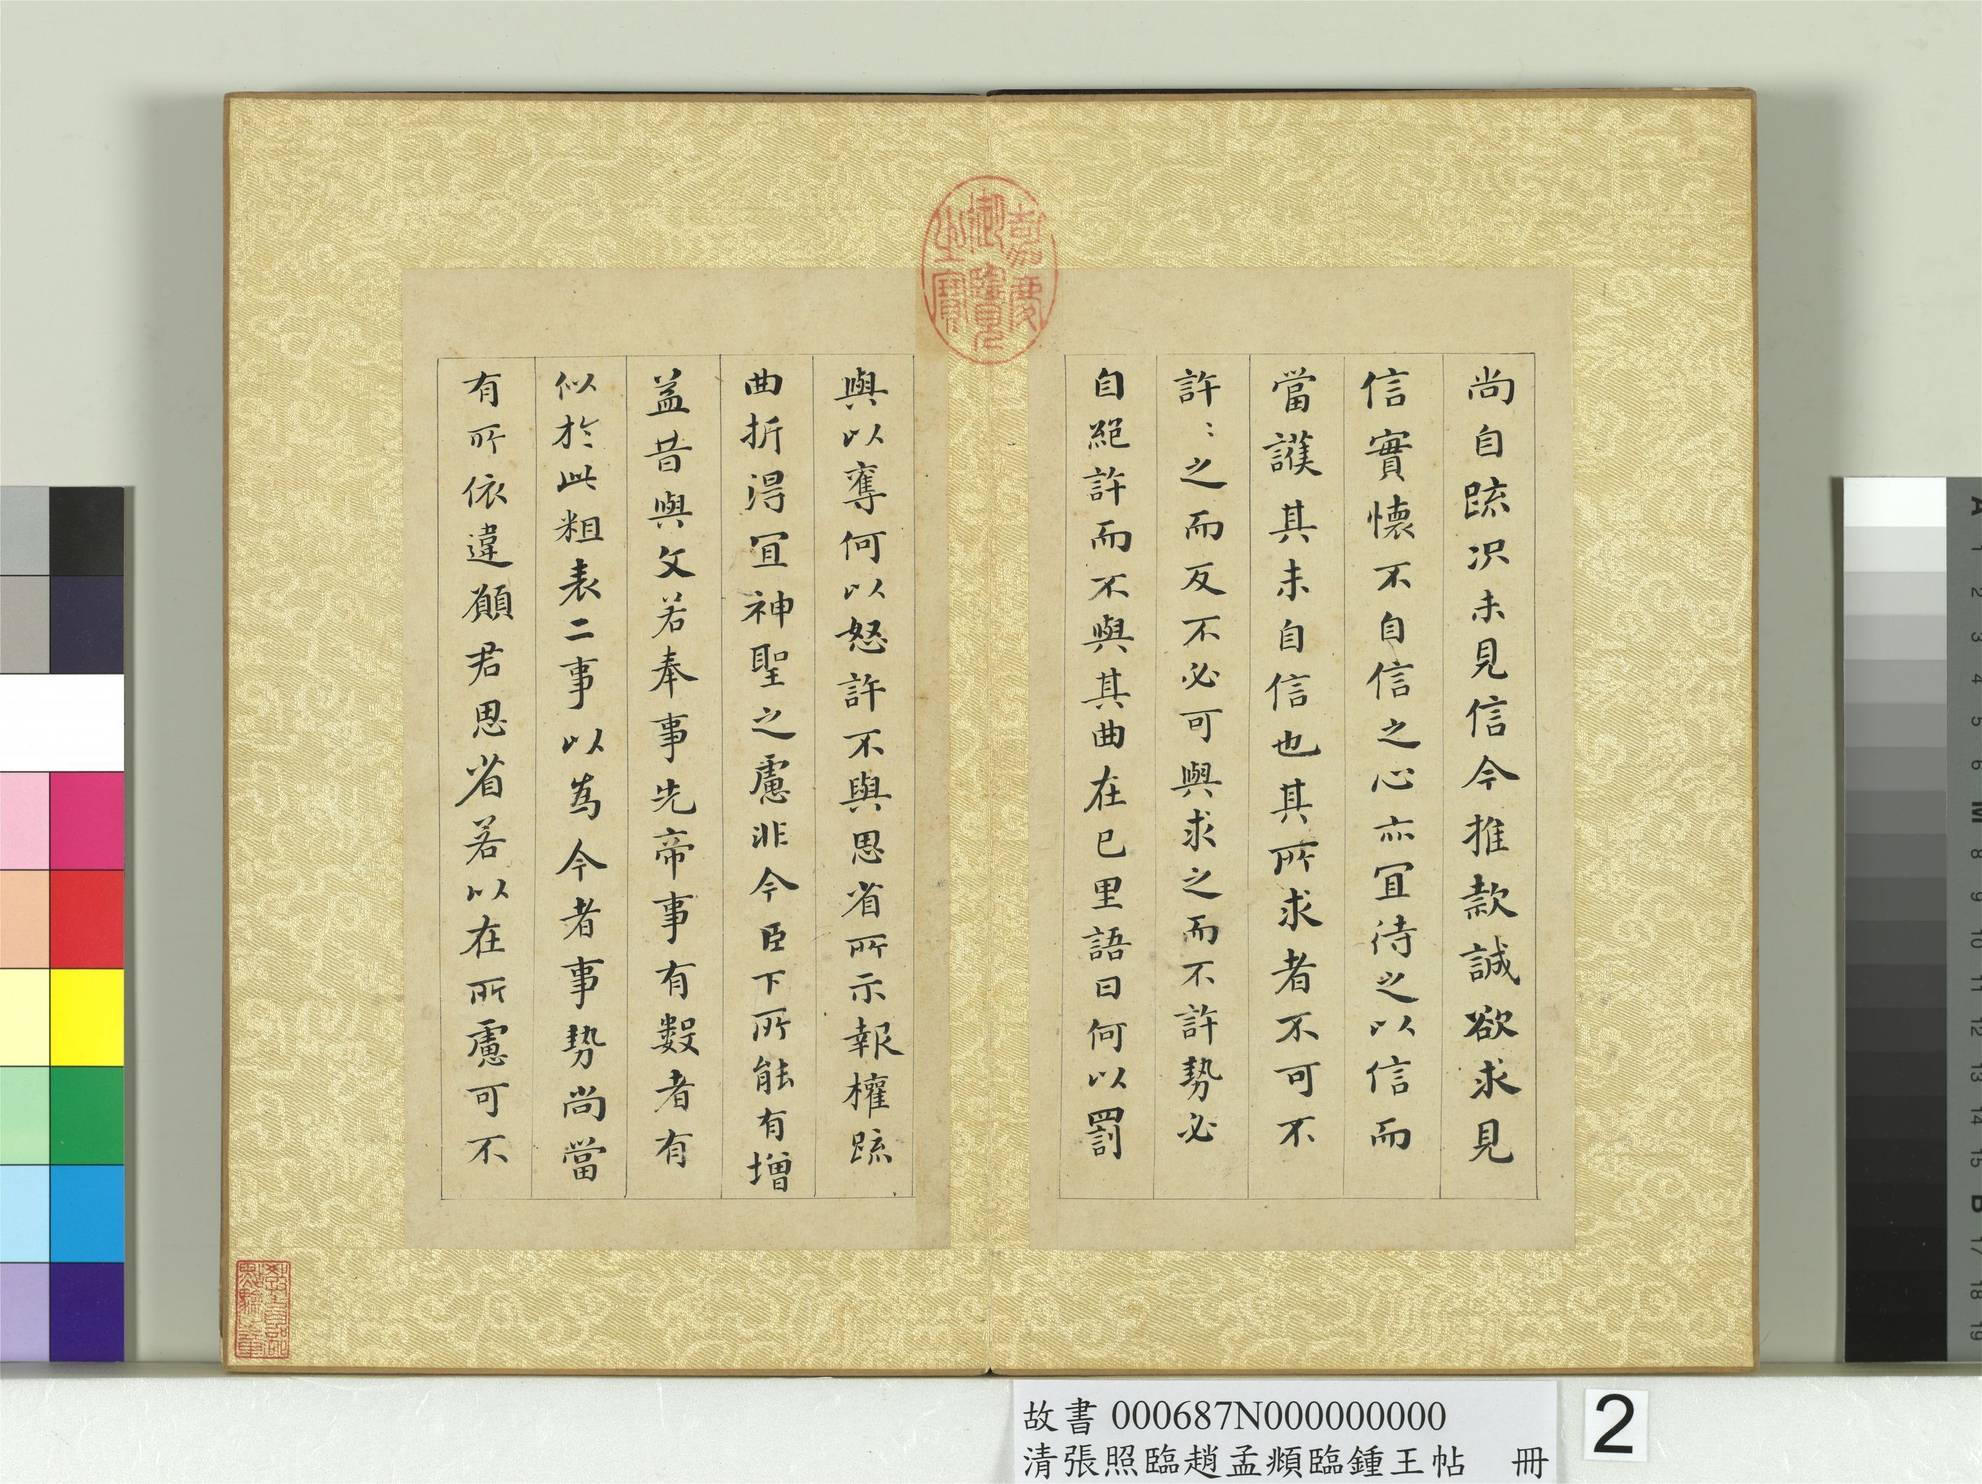 尚自疏况未見信今推款誠欲求見
信實懷不自信之心亦冝待之以信而
當護其未自信也其所求者不可不
許〻之而反不必可與求之而不許勢必
自絕許而不與其曲在已里語曰何以罰
與以奪何以怒許不與思省所示報權疏
曲折得冝神聖之慮非今臣下所能有增
益昔與文若奉事先帝事有數者有
似於此粗表二事以為今者事勢尚當
有所依違願君思省若以在所慮可不
嘉慶御覽之寶
教育部點驗之章
故書 000687N000000000
清張照臨趙孟頫臨鍾王帖 冊
2
A 1 2 3 4 5 6 M 8 9 10 11 12 13 14 15 B 17 18 19